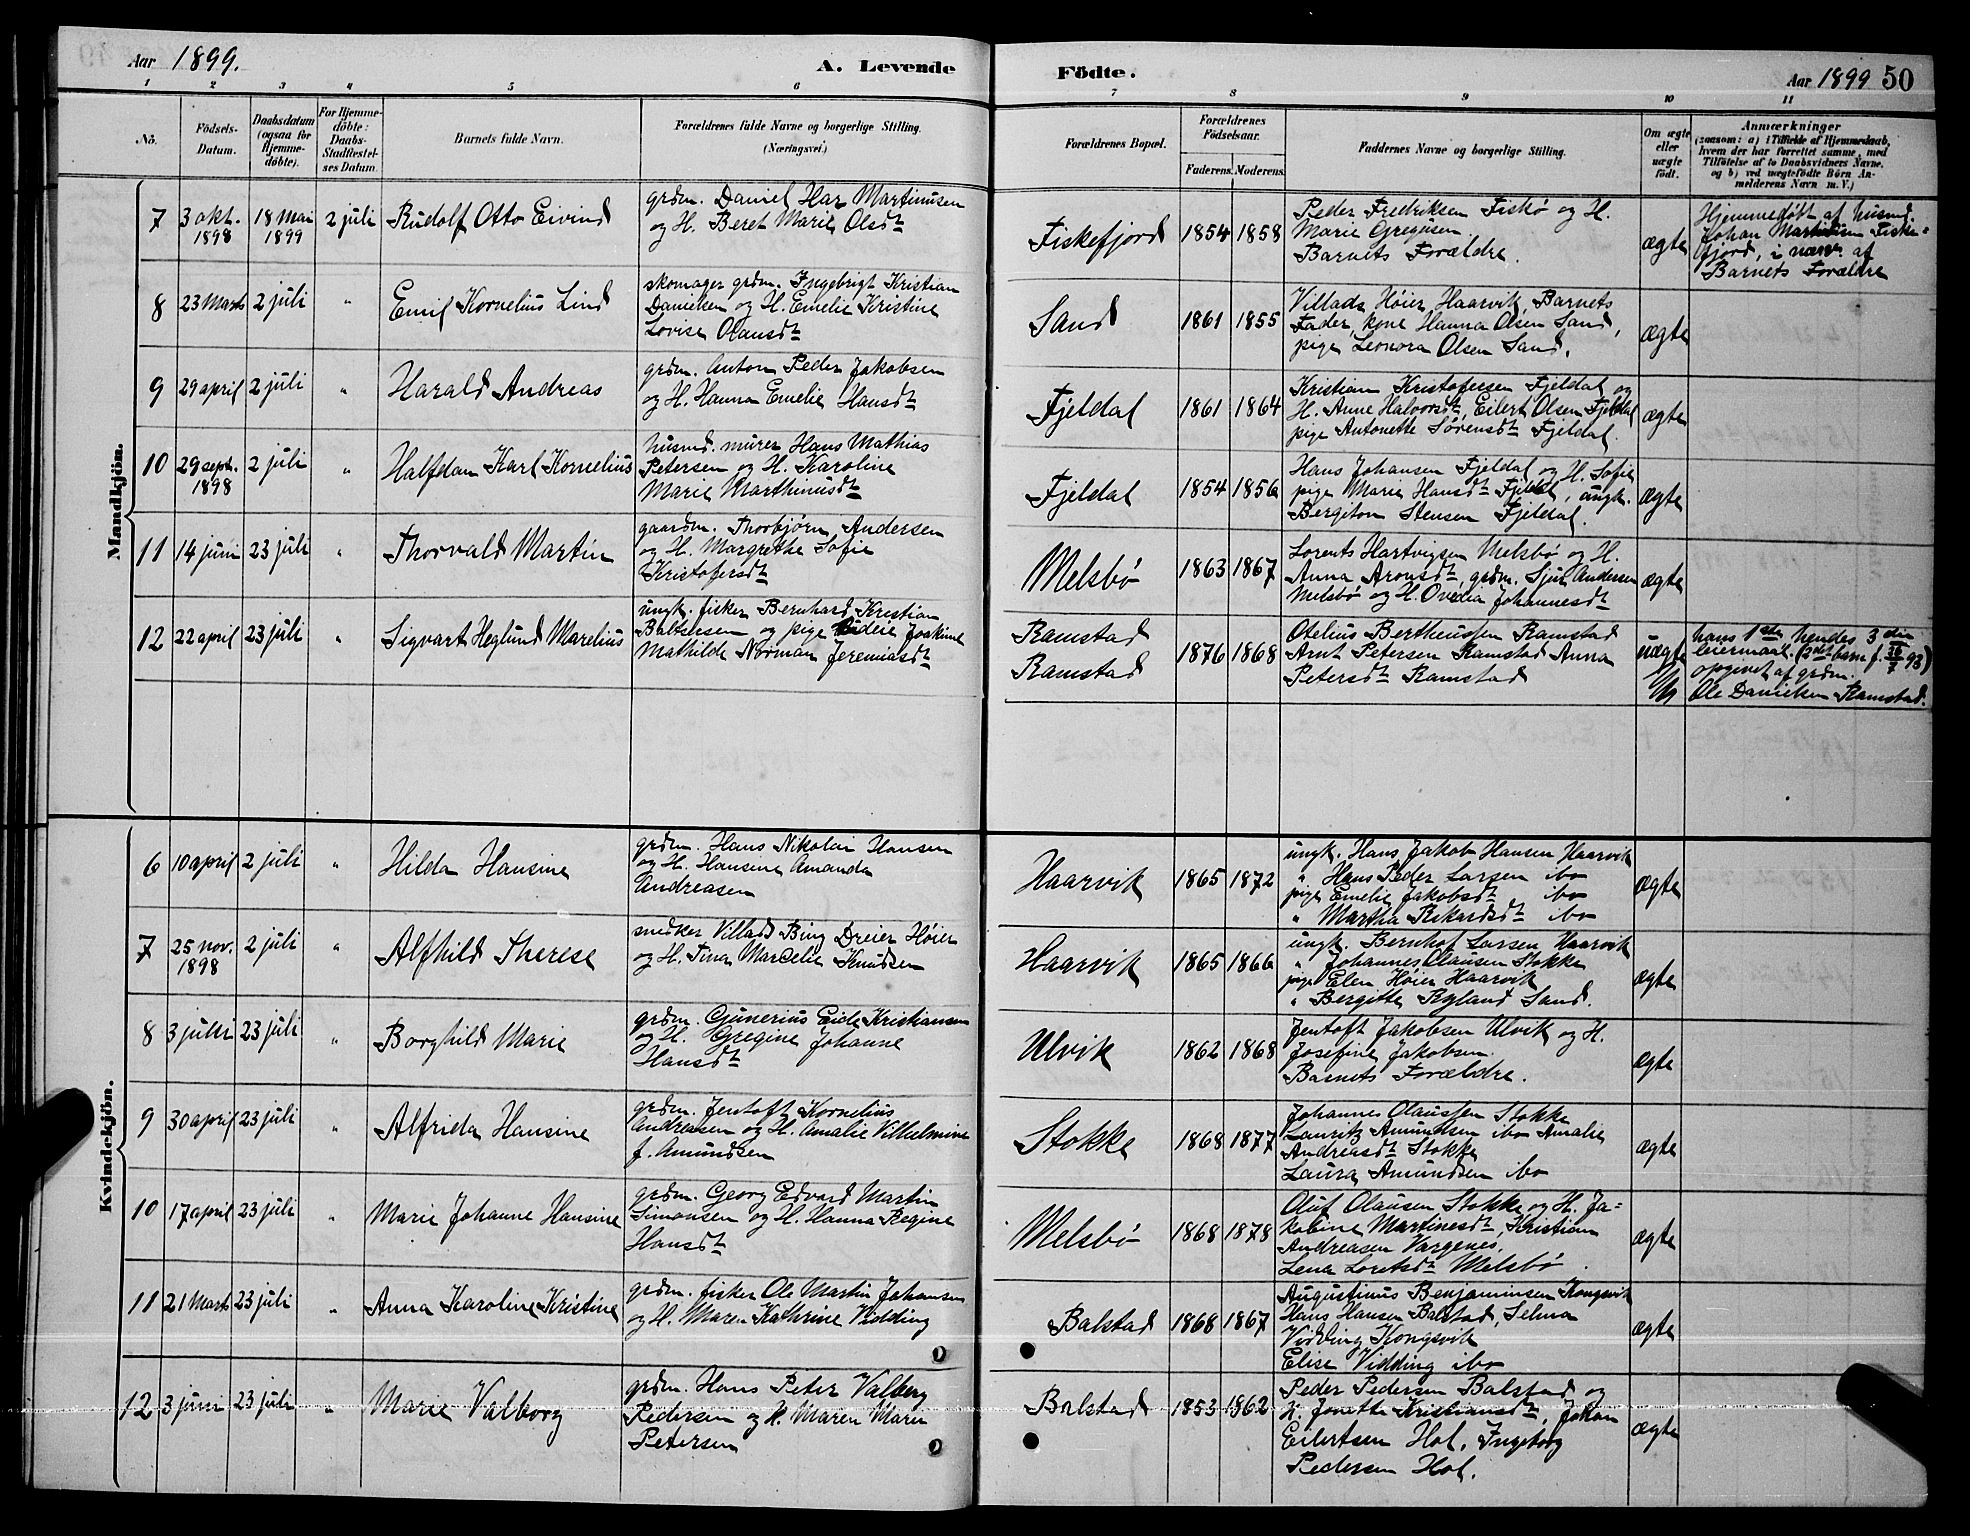 Aar 1899.
A. Levende
Födte.
Aar 1899 50
1 2 3 4 5 6 7 8 9 10 11
No.
Födsels-
Datum.
Daabsdatum
(ogsaa for
Hjemme-
döbte).
For Hjemme-
döbte:
Daabs-
Stadfæstel-
ses Datum.
Barnets fulde Navn.
Forældrenes fulde Navne og borgerlige Stilling.
(Næringsvei.)
Forældrenes Bopæl.
Forældrenes
Födselsaar.
Faderens. Moderens.
Faddernes Navne og borgerlige Stilling.
Om ægte
eller
uægte
födt.
Anmærkninger
(saasom: a) i Tilfælde af Hjemmedaab,
hvem der har forrettet samme, med
Tilföielse af to Daabsvidners Navne,
og b) ved uægtefödte Börn An-
melderens Navn m. V.)
Mandkjön.
7
3 okt.
1898
18 Mai
1899
2 juli
Rudolf Otto Eivind
grdm. Daniel Har Martinusen
og H. Beret Marie Olsdt
Fiskefjord
1854 1858
Peder Fredriksen Fiskø og H.
Marie Gregusen.
Barnets Forældre.
ægte
Hjemmedöbt af husmd.
Johan Fiske-
fjord, i nærv. af
Barnets Forældre
8
23 Marts
2 juli
"
Emil Kornelius Lind
skomager grdm. Ingebrigt Kristian
Danielsen og H. Emelie Kristine
Lovise Olausdt
Sand
1861 1855
Villads Høier Haarvik, Barnets
Fader, kone Hanna Olsen Sand,
pige Leonora Olsen Sand.
ægte
9
29 april
2 juli
"
Harald Andreas
grdm. Anton Peder Jakobsen
og H. Hanna Emelie Hansdt
Fjeldal
1861 1864
Kristian Kristofersen Fjeldal og
H. Anne Halvorsdt, Eilert Olsen Fjeldal
pige Antonette Sørensdt Fjeldal.
ægte
10
29 septr.
1898
2 juli
"
Halfdan Karl Kornelius
husmd. murer Hans Mathias
Petersen og H. Karoline
Marie Marthinusdt
Fjeldal
1854 1856
Hans Johansen Fjeldal og H. Sofie
pige Marie Hansdt Fjeldal, ungk.
Bergiton Stensen Fjeldal.
ægte
11
14 juni
23 juli
"
Thorvald Martin
gaardm. Thorbjørn Andersen
og H. Margrethe Sofie
Kristofersdt
Melsbö
1863 1867
Lorents Hartvigsen Melsbö og H.
Anna Aronsdt, grdm. Sjur Andersen
Melsbö og H. Ovedia Johannesdt
ægte
12
22 april
23 juli
"
Sigvart Heglund Marelius
ungk. fisker Bernhard Kristian
Baltsersen og pige Joakime
Mathilde Norman Jeremiasdt
Ramstad
Ramstad
1876 1868
Otelius Bertheussen Ramstad
Arnt Petersen Ramstad Anna
Petersdt Ramstad
uægte
hans 1ste hendes 3die
leiermaal. (2det barn f. 26/7 93)
opgivet af grdm.
Ole Danielsen Ramstad.
Kvindekjön.
6
10 april
2 juli
"
Hilda Hansine
grdm. Hans Nikolai Hansen
og H. Hansine Amanda
Andreasen
Haarvik
1865 1872
ungk. Hans Jakob Hansen Haarvik
" Hans Peder Larsen ibo
pige Emelie Jakobsdt ibo
" Martha Rikardsdt ibo
ægte
7
25 nov.
1898
2 juli
"
Alfhild Therese
snedker Villads Bing Dreier Høier
og H. Tina Marcelie Knudsen
Haarvik
1865 1866
ungk. Bernhof Larsen Haarvik
" Johannes Olausen Stokke
pige Elen Høier Haarvik
" Bergitte Ryland Sand.
ægte
8
3 juli
23 juli
"
Borghild Marie
grdm. Gunerius Eide Kristiansen
og H. Gregine Johanne
Hansdt
Ulvik
1862 1868
Jentoft Jakobsen Ulvik og H.
Josefine Jakobsen.
Barnets Forældre.
ægte
9
30 april
23 juli
"
Alfrida Hansine
grdm. Jentoft Kornelius
Andreasen og H. Amalie Vilhelmine
f. Amundsen
Stokke
1868 1877
Johannes Olaussen Stokke
Lauritz Amundsen ibo Amalie
Andreasdt Stokke
Laura Amundsen ibo
ægte
10
17 april
23 juli
"
Marie Johanne Hansine
grdm. Georg Edvard Martin
Simonsen og H. Hanna Regine
Hansdt
Melsbö
1868 1878
Oluf Olausen Stokke og H. Ja-
kobine Martinesdt, Kristian
Andreasen Vargenes,
Lena Loretsdt Melsbö.
ægte
11
21 Marts
23 juli
"
Anna Karoline Kristine
grdm. fisker Ole Martin Johansen
og H. Maren Kathrine Vidding
Balstad
1868 1867
Augustinus Benjaminsen Kongsvik
Hans Hansen Balstad, Selma
Vidding Kongsvik
Elise Vidding ibo
ægte
12
3 juni
23 juli
"
Marie Valborg
grdm. Hans Peter Valberg
Pedersen og H. Maren Marie
Petersen
Balstad
1853 1862
Peder Pedersen Balstad og
H. Jonette Kristiansdt, Johan
Eilertsen Hol, Ingeborg
Pedersen Hol.
ægte